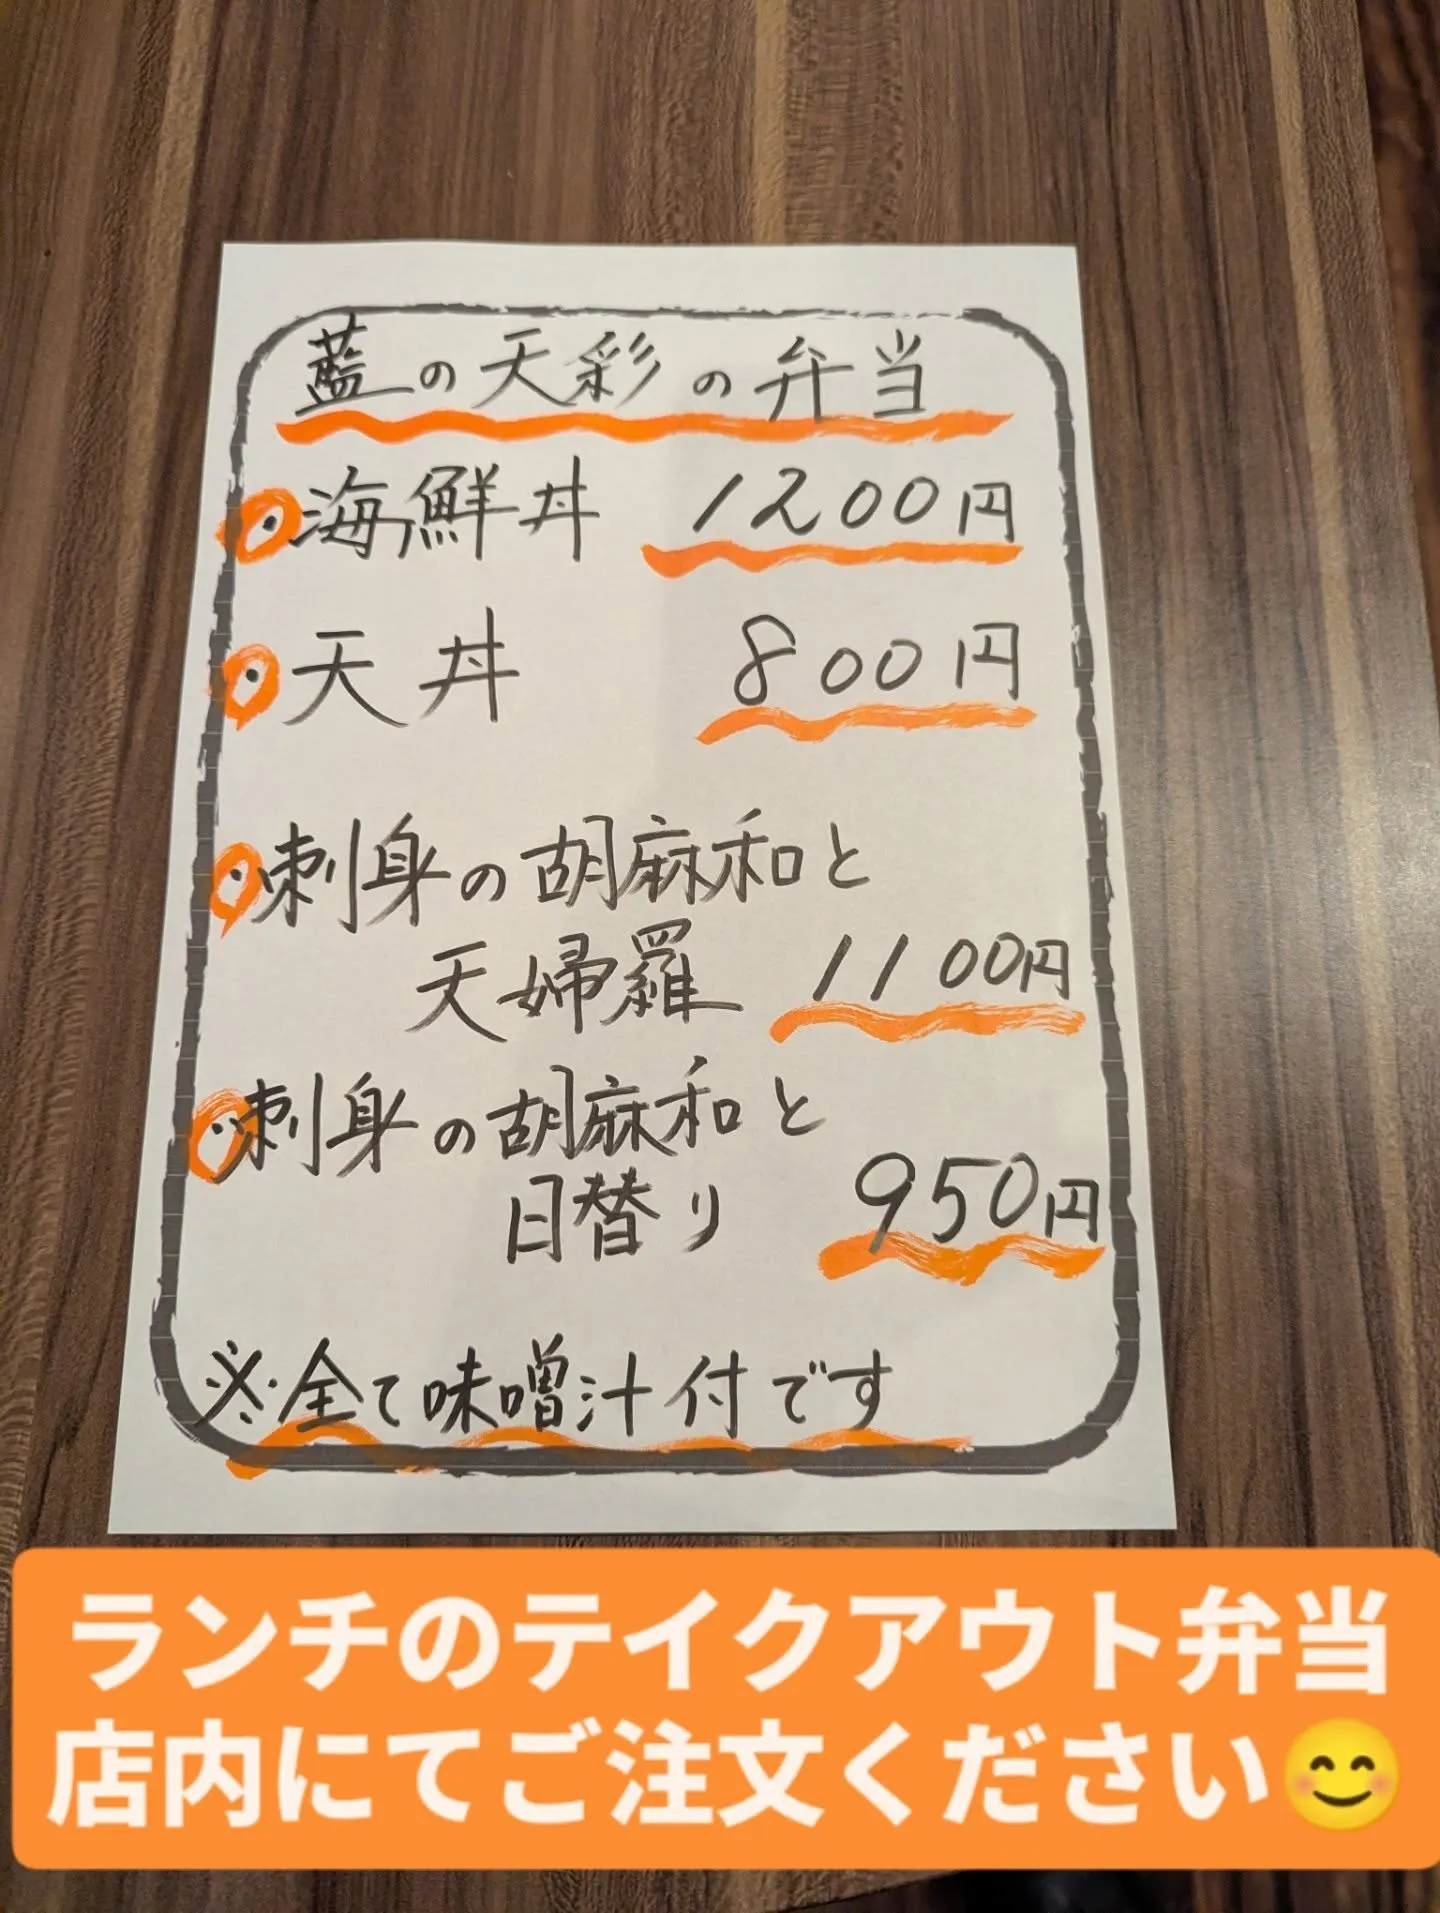 藍の天彩の弁当
・海鮮丼 1200円
・天丼 800円
・刺身の胡麻和と
天婦羅 1100円
・刺身の胡麻和と
日替り 950円
※全て味噌汁付です
ランチのテイクアウト弁当
店内にてご注文ください😊